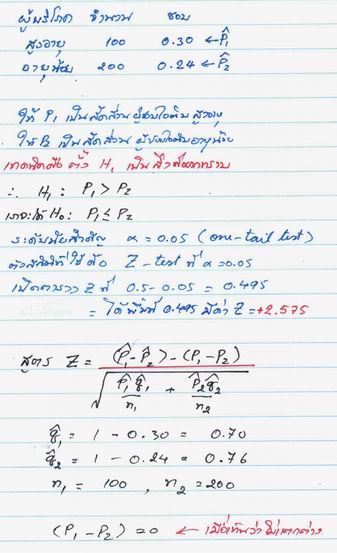 ผู้บริโภค จำนวน ชอบ
สูงอายุ 100 0.30 ← P̂₁
อายุน้อย 200 0.24 ← P̂₂
ให้ P₁ เป็นสัดส่วน ผู้ชอบใน สูงอายุ
ให้ P₂ เป็นสัดส่วน ผู้ชอบใน อายุน้อย
เทคนิคคือ ตั้ง H₁ เป็นสิ่งที่อยากทราบ
∴ H₁ : P₁ > P₂
เราจะได้ H₀ : P₁ ≤ P₂
ระดับนัยสำคัญ α = 0.05 (one-tail test)
ตัวสถิติที่ใช้ คือ Z-test ที่ α = 0.05
เปิดตาราง Z ที่ 0.5 - 0.05 = 0.495
= ได้พื้นที่ 0.495 มีค่า Z = +2.575
สูตร Z = (P̂₁ - P̂₂) - (P₁ - P₂)
√ P̂₁q̂₁/n₁ + P̂₂q̂₂/n₂
q̂₁ = 1 - 0.30 = 0.70
q̂₂ = 1 - 0.24 = 0.76
n₁ = 100 , n₂ = 200
(P₁ - P₂) = 0 ← เมื่อเห็นว่าไม่แตกต่าง